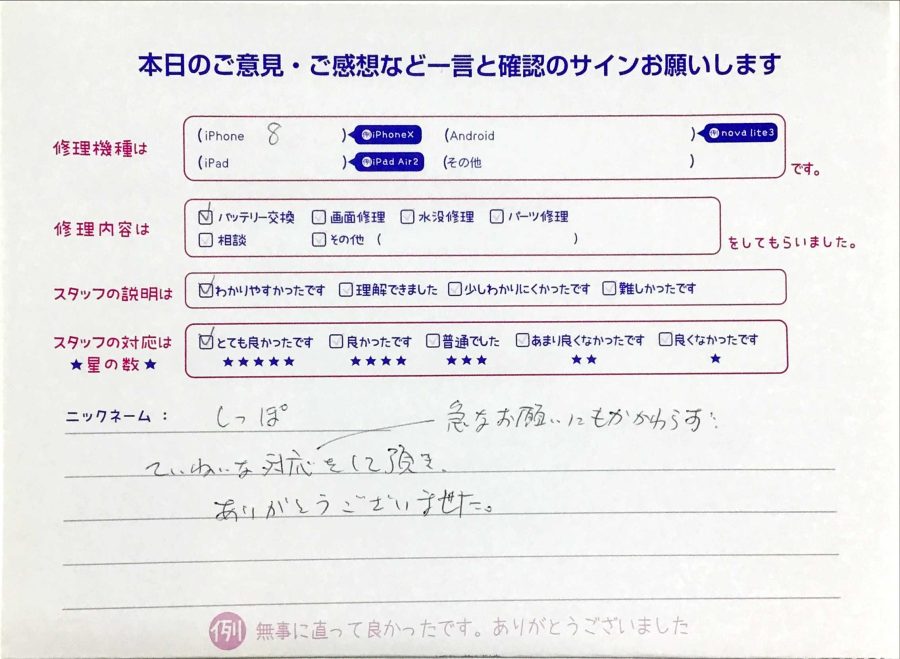 本日のご意見・ご感想など一言と確認のサインお願いします
修理機種は
(iPhone 8 ) 例iPhoneX (Android ) 例nova lite3
(iPad ) 例iPad Air2 (その他 ) です。
修理内容は
バッテリー交換 画面修理 水没修理 パーツ修理
相談 その他 ( ) をしてもらいました。
スタッフの説明は わかりやすかったです 理解できました 少しわかりにくかったです 難しかったです
スタッフの対応は とても良かったです 良かったです 普通でした あまり良くなかったです 良くなかったです
★星の数★ ★★★★★ ★★★★ ★★★ ★★ ★
ニックネーム: しっぽ 急なお願いにもかかわらず
ていねいな対応をして頂き、
ありがとうございました。
例 無事に直って良かったです。ありがとうございました